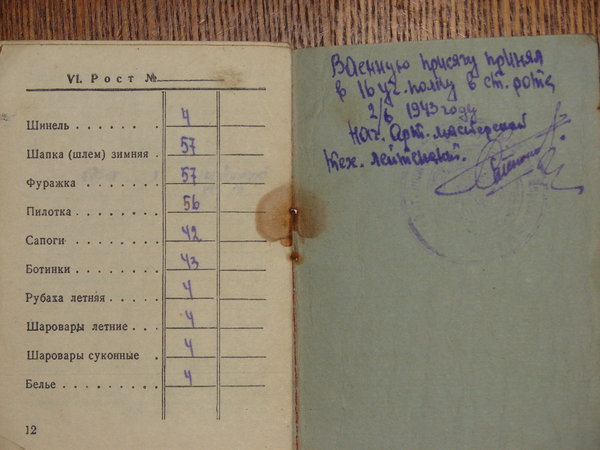 VI. Рост №
Шинель . . . . . . 4
Шапка (шлем) зимняя . 57
Фуражка . . . . . 57
Пилотка . . . . . 56
Сапоги . . . . . . 42
Ботинки . . . . . 43
Рубаха летняя . . . . 4
Шаровары летние . . . 4
Шаровары суконные . 4
Белье . . . . . . . . 4
12
Военную присягу принял
в 16 уч. полку в ст. роте
2/6 1943 году
Нач. Арт. мастерской
тех. лейтенант.